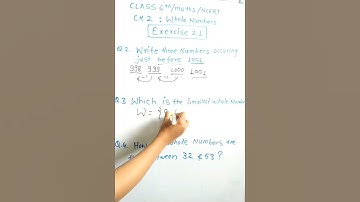 CLASS 6th/maths/NCERT
CH 2: Whole Numbers
Exercise 2.1
Q2. Write three Numbers occuring
just before 1001
998 999 1000 1001
Q.3 Which is the Smallest Whole Number
W = {0,
Q.4. How Whole Numbers are
between 32 & 53?